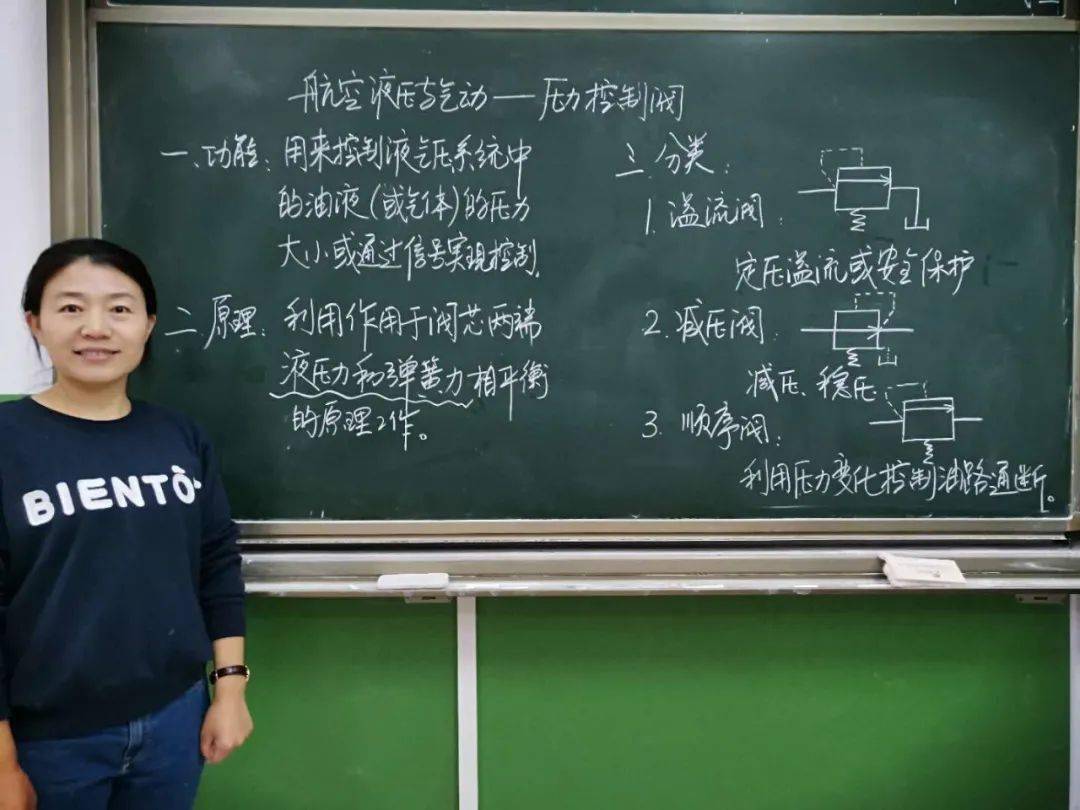 航空液压与气动——压力控制阀
一、功能：用来控制液气压系统中
的油液(或气体)的压力
大小或通过信号实现控制.
二、原理：利用作用于阀芯两端
液压力和弹簧力相平衡
的原理工作。
三、分类：
1. 溢流阀：
定压溢流或安全保护
2. 减压阀：
减压、稳压
3. 顺序阀：
利用压力变化控制油路通断。
BIENTÔ